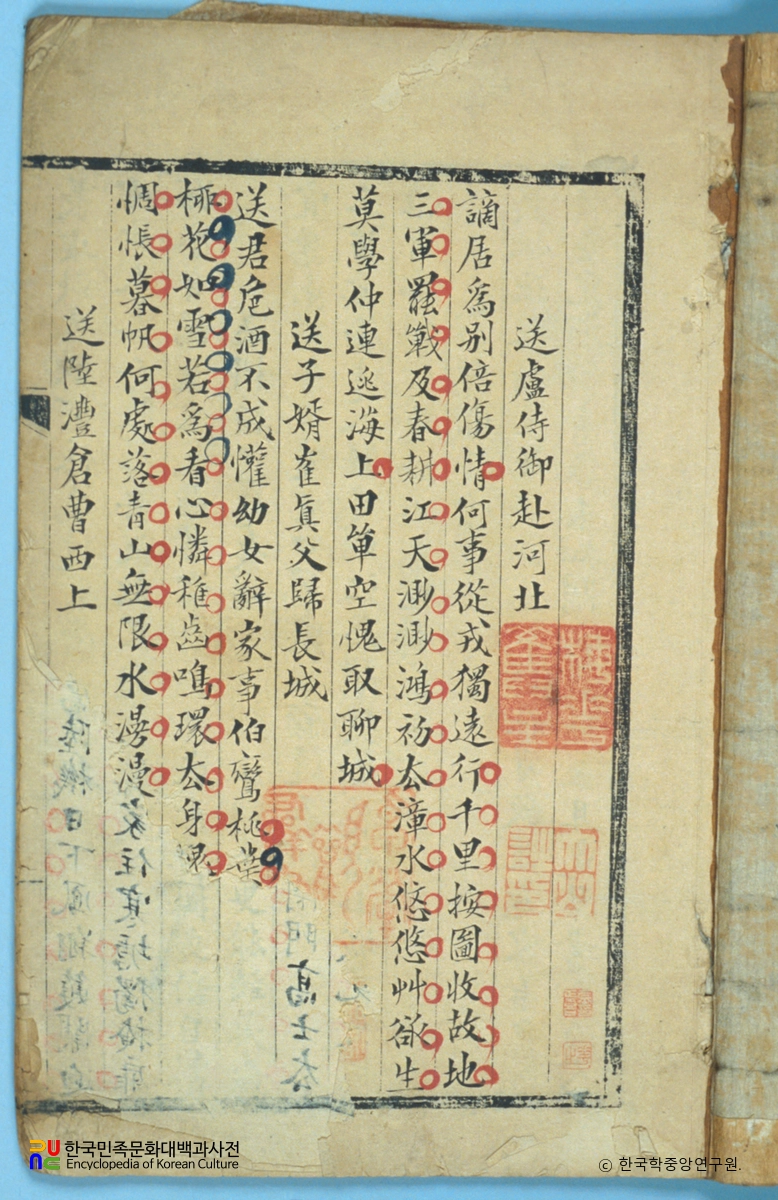 送盧侍御赴河北
謫居爲别倍傷情何事從戎獨遠行千里按圖收故地
三軍罷戰及春耕江天渺渺鴻初去漳水悠悠艸欲生
莫學仲連逃海上田單空愧取聊城
送子婿崔眞父歸長城
送君卮酒不成懽幼女辭家事伯鸞桃葉
柳花如雪若爲看心憐稚齒鳴環去身
惆悵暮帆何處落青山無限水漫漫
送陸灃倉曹西上
한국민족문화대백과사전
Encyclopedia of Korean Culture
ⓒ 한국학중앙연구원.